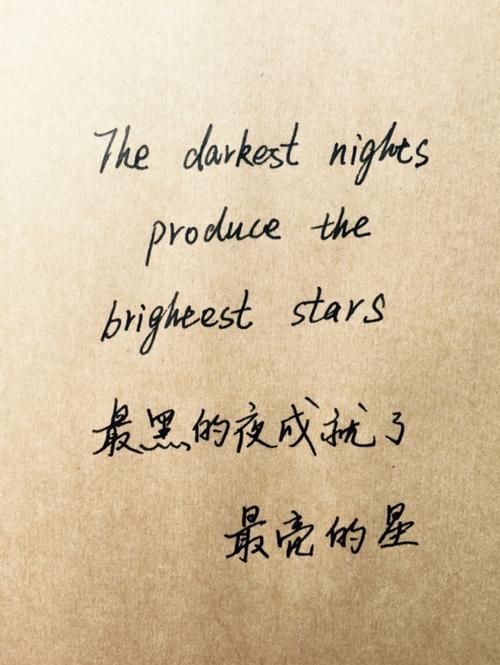 The darkest nights
produce the
brightest stars
最黑的夜成就了
最亮的星